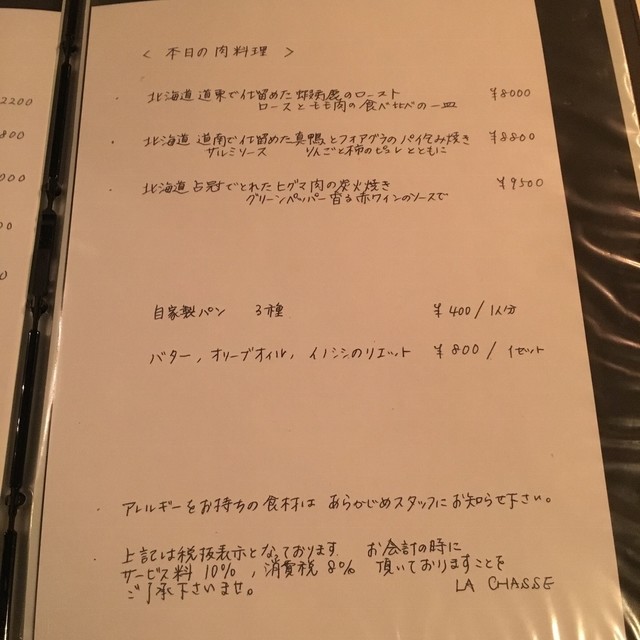 2200
800
000
0
0
< 本日の肉料理 >
・ 北海道 道東で仕留めた蝦夷鹿のロースト ¥8000
ロースともも肉の食べ比べの一皿
・ 北海道 道南で仕留めた真鴨とフォアグラのパイ包み焼き ¥8800
サルミソース りんごと柿のピュレとともに
・ 北海道 占冠でとれたヒグマ肉の炭火焼き ¥9500
グリーンペッパー香る赤ワインのソースで
自家製パン 3種 ¥400/1人分
バター, オリーブオイル, イノシシのリエット ¥800/1セット
・ アレルギーをお持ちの食材は あらかじめスタッフにお知らせ下さい。
・ 上記は税抜表示となっております お会計の時に
サービス料 10%, 消費税 8% 頂いておりますことを
ご了承下さいませ。 LA CHASSE